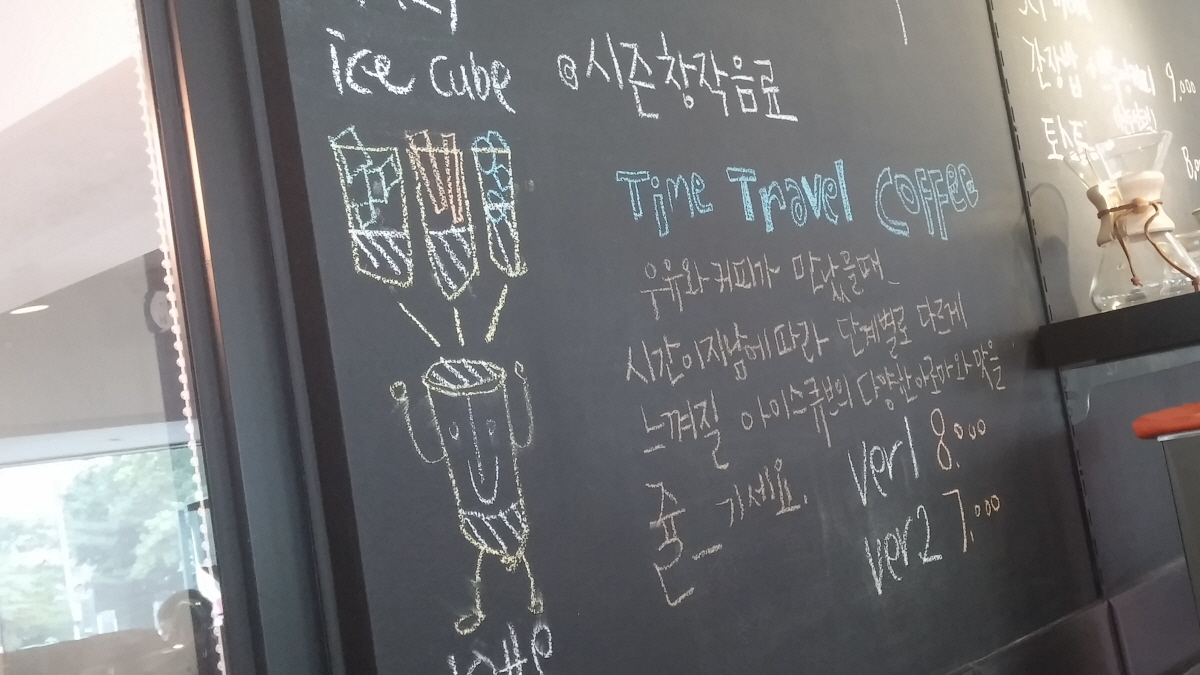 ice cube
◎시즌창작음료
Time Travel COFFEE
우유와 커피가 만났을때
시간이지남에따라 단계별로 다르게
느껴질 아이스큐브의 다양한 아로마와 맛을
즐기세요.
ver1 8.000
ver2 7.000
간장밥
9.000
토스트